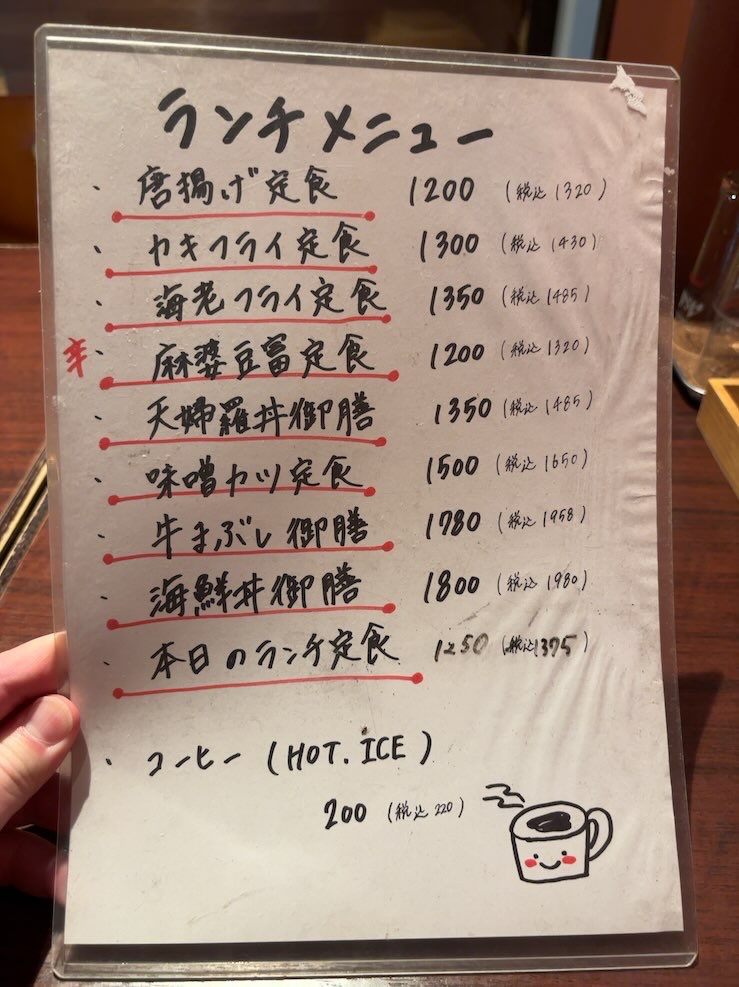 ランチメニュー
・唐揚げ定食 1200 (税込1320)
・カキフライ定食 1300 (税込1430)
・海老フライ定食 1350 (税込1485)
辛・麻婆豆富定食 1200 (税込1320)
・天婦羅丼御膳 1350 (税込1485)
・味噌カツ定食 1500 (税込1650)
・牛まぶし御膳 1780 (税込1958)
・海鮮丼御膳 1800 (税込1980)
・本日のランチ定食 1250 (税込1375)
・コーヒー (HOT. ICE)
200 (税込220)